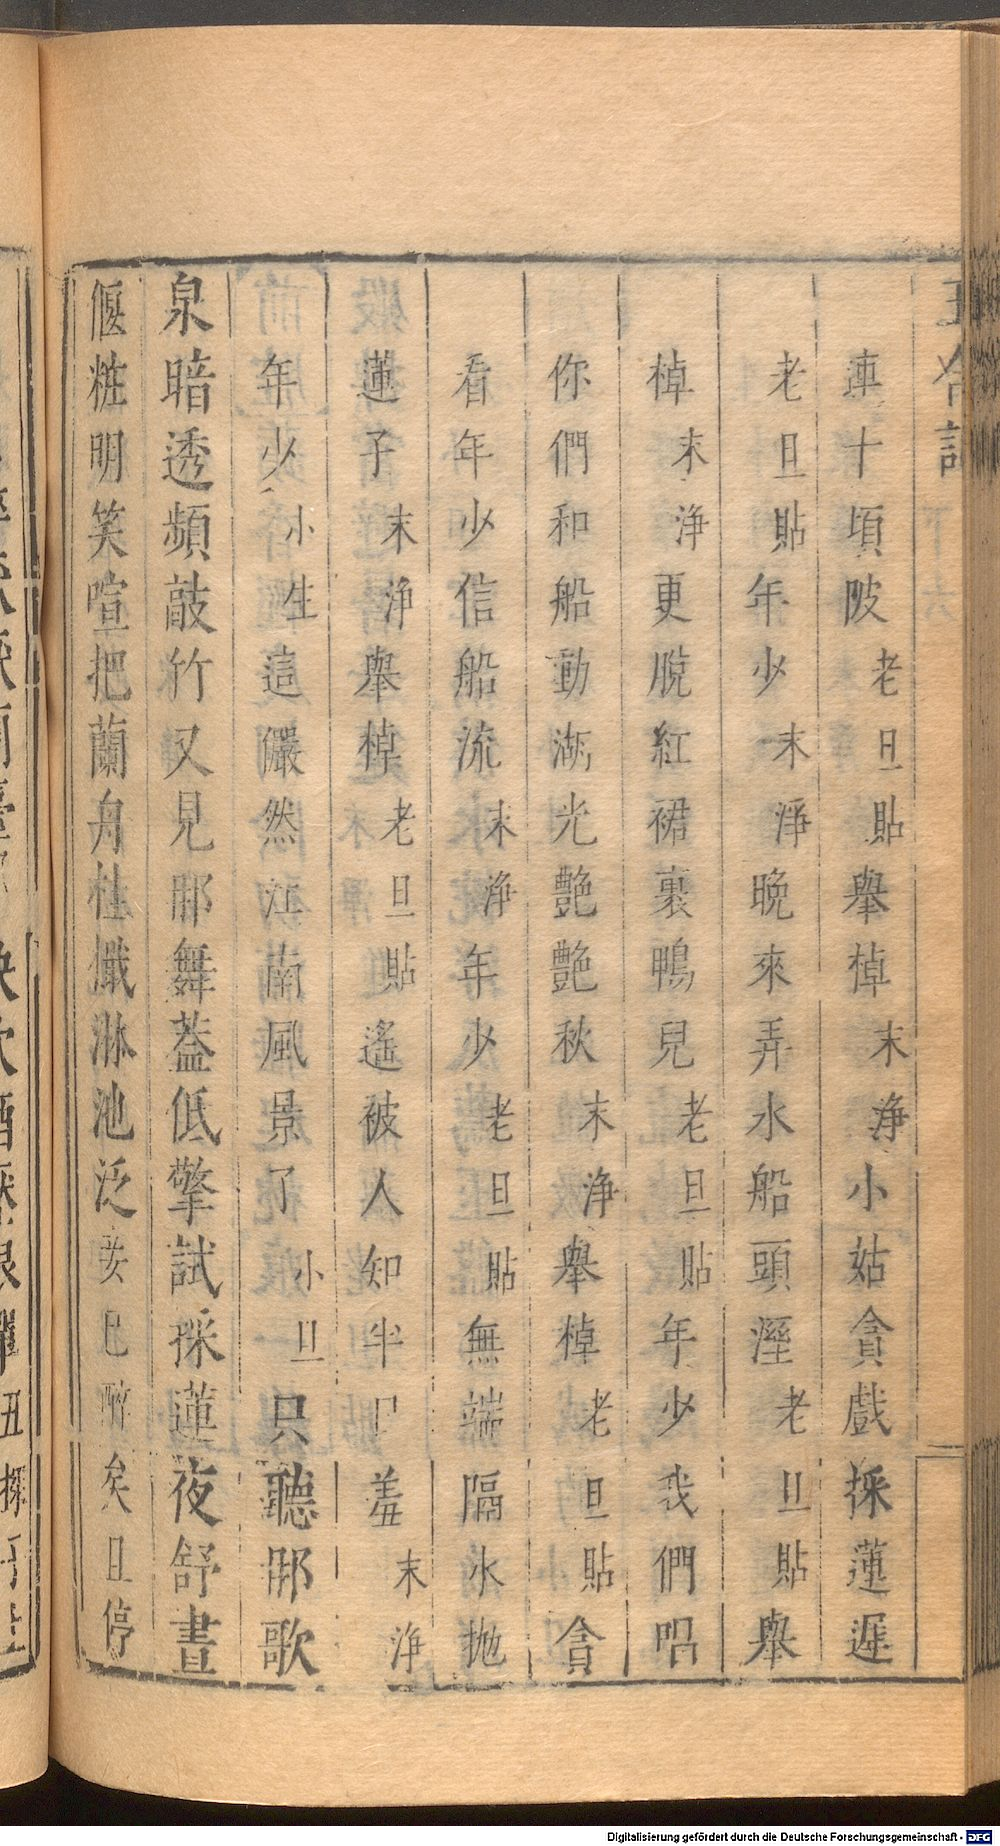 連十頃陂老旦貼舉棹末淨小姑貪戲採蓮遲
老旦貼年少末淨晚來弄水船頭溼老旦貼舉
棹末淨更脫紅裙裹鴨兒老旦貼年少我們唱
你們和船動湖光艷艷秋末淨舉棹老旦貼貪
看年少信船流末淨年少老旦貼無端隔水拋
蓮子末淨舉棹老旦貼遙被人知半尸羞末淨
年少小生這儼然江南風景了小旦只聽那歌
泉暗透頻敲竹又見那舞葢低擎試採蓮夜舒晝
偃粧明笑喧把蘭舟桂檝淋池泛妾已醉矣旦停
Digitalisierung gefördert durch die Deutsche Forschungsgemeinschaft - DFG